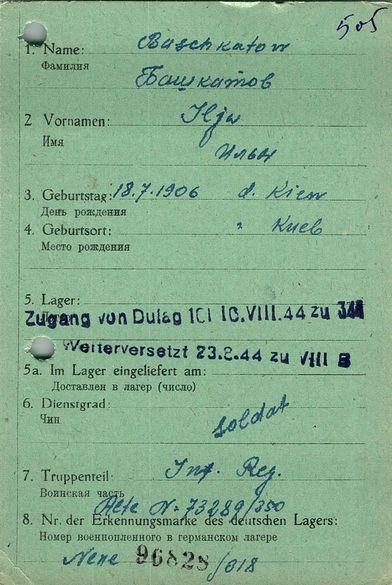 505
1. Name: Baschkatow
Фамилия
Башкатов
2 Vornamen: Ilja
Имя
Илья
3. Geburtstag: 18.7.1906 d. Kiew
День рождения
4. Geburtsort: " Киев
Место рождения
5. Lager:
Zugang von Dulag 101 10.VIII.44 zu 344
Weiterversetzt 23.8.44 zu VIII B
5a. Im Lager eingeliefert am:
Доставлен в лагер (число)
6. Dienstgrad:
Чин
soldat
7. Truppenteil: Inf. Reg.
Воинская часть
Alte N- 73289/350
8. Nr. der Erkennungsmarke des deutschen Lagers:
Номер военнопленного в германском лагере
Neue 96828/318